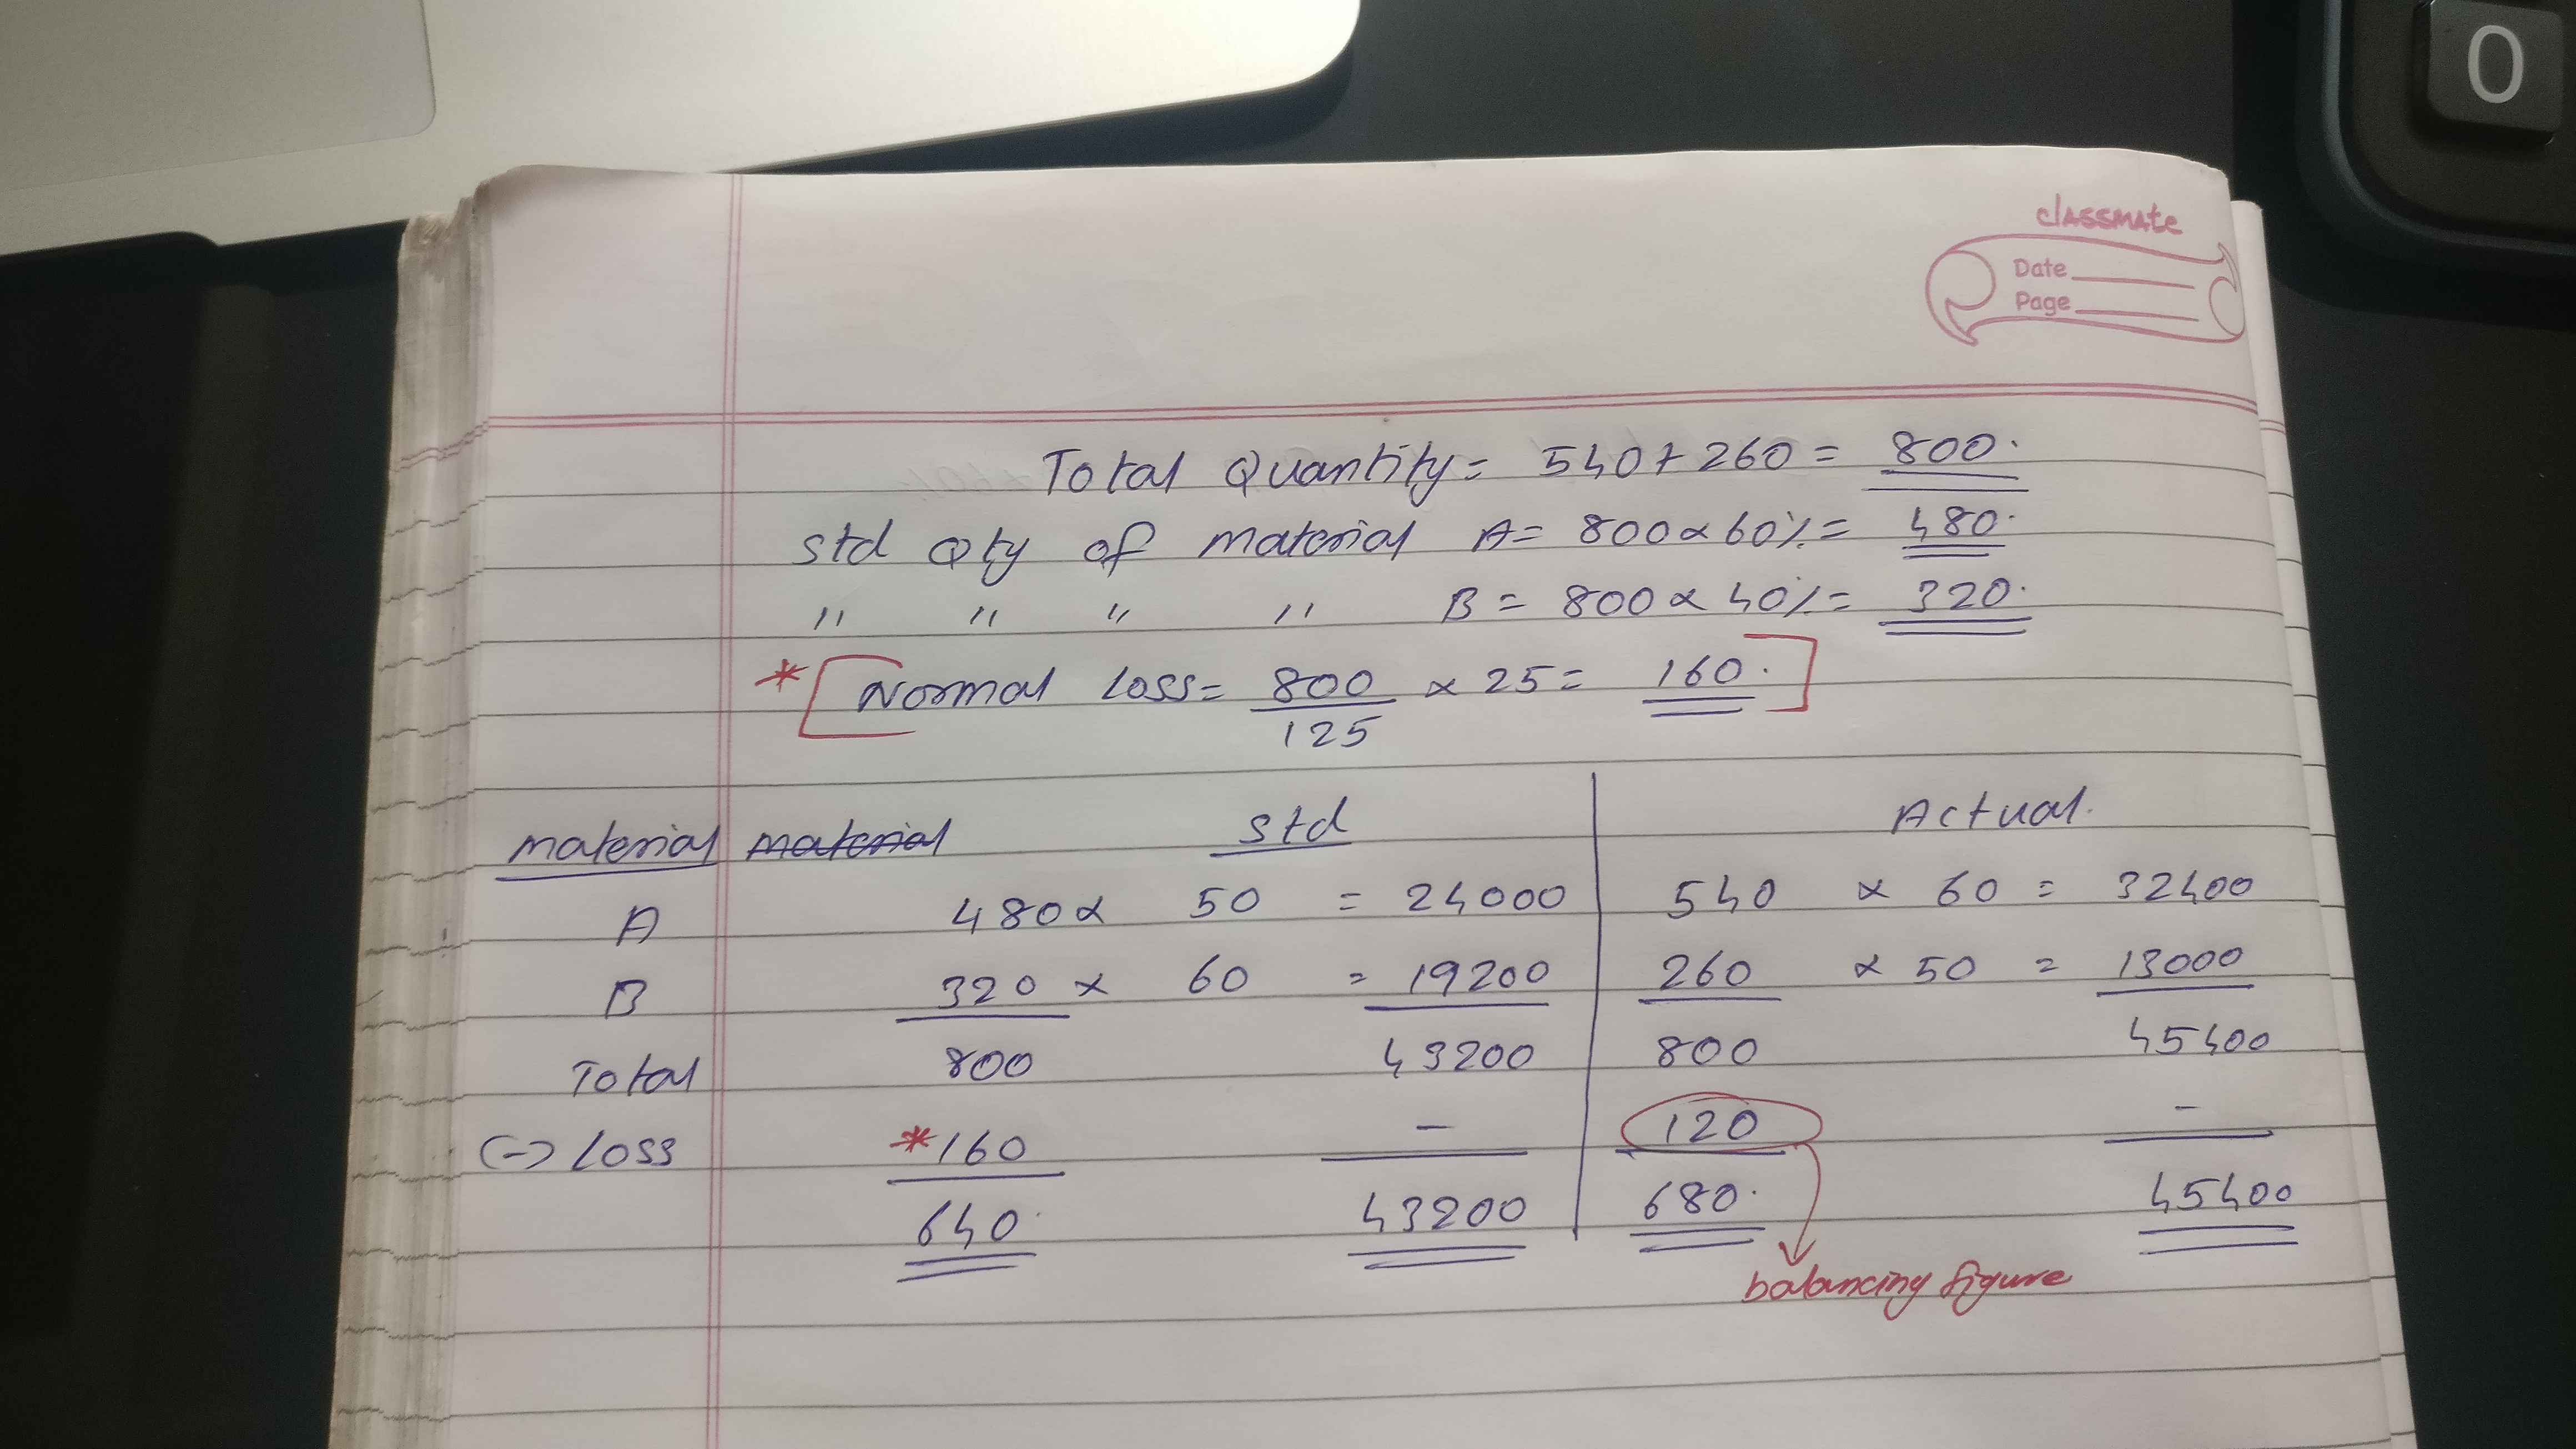 0
classmate
Date
Page
Total Quantity = 540 + 260 = 800.
Std Qty of material A = 800 x 60% = 480.
" " " " B = 800 x 40% = 320.
* [ Normal Loss = 800/125 x 25 = 160. ]
material material Std Actual.
A 480 x 50 = 24000 540 x 60 = 32400
B 320 x 60 = 19200 260 x 50 = 13000
Total 800 43200 800 45400
(-) Loss *160 - 120 -
640. 43200 680. 45400
balancing figure